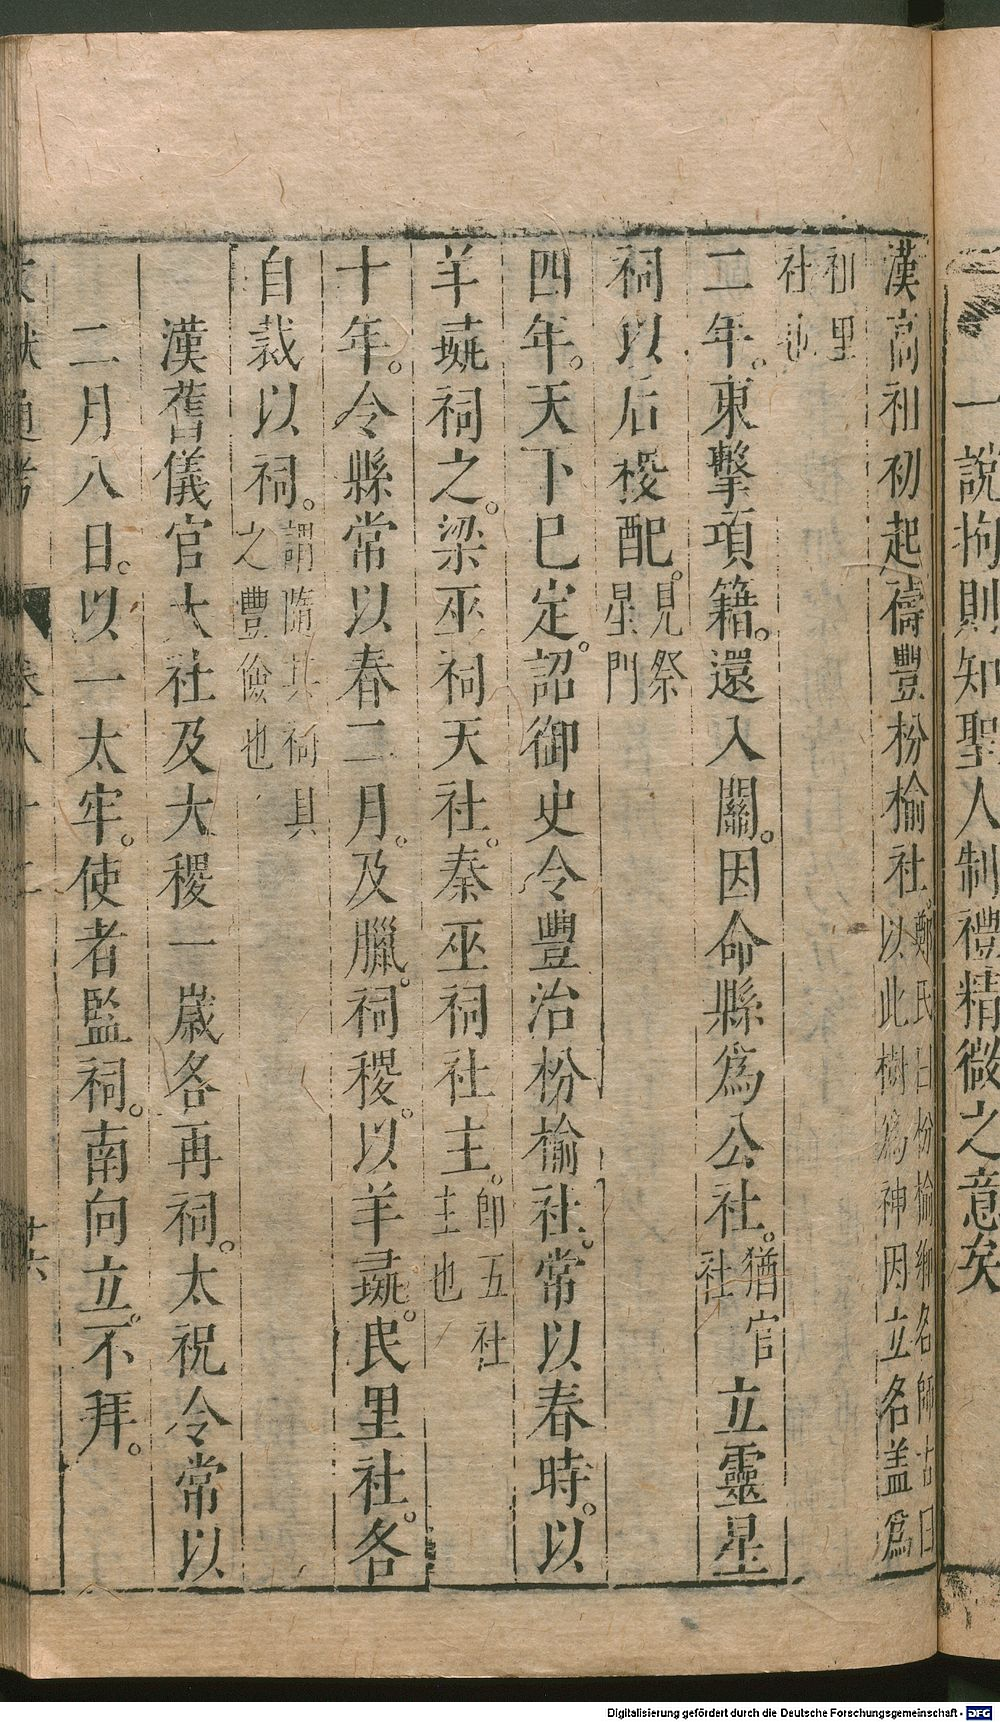 一說拘則知聖人制禮精微之意矣
漢高祖初起禱豐枌榆社。鄭氏曰枌榆鄉名師古曰以此樹為神因立名盖爲
初里社也
二年。東擊項籍。還入關。因命縣爲公社。猶官社立靈星
祠以后稷配。見祭星門
四年。天下已定。詔御史令豐治枌榆社。常以春時。以
羊彘祠之。梁巫祠天社。秦巫祠社主。卽五社主也
十年。令縣常以春二月。及臘。祠稷。以羊彘。民里社。各
自裁以祠。謂隨其祠具之豐儉也
漢舊儀官大社及大稷一歲各再祠。太祝令常以
二月八日。以一太牢。使者監祠。南向立。不拜。
文獻通考 卷八十二 廿六
Digitalisierung gefördert durch die Deutsche Forschungsgemeinschaft - DFG